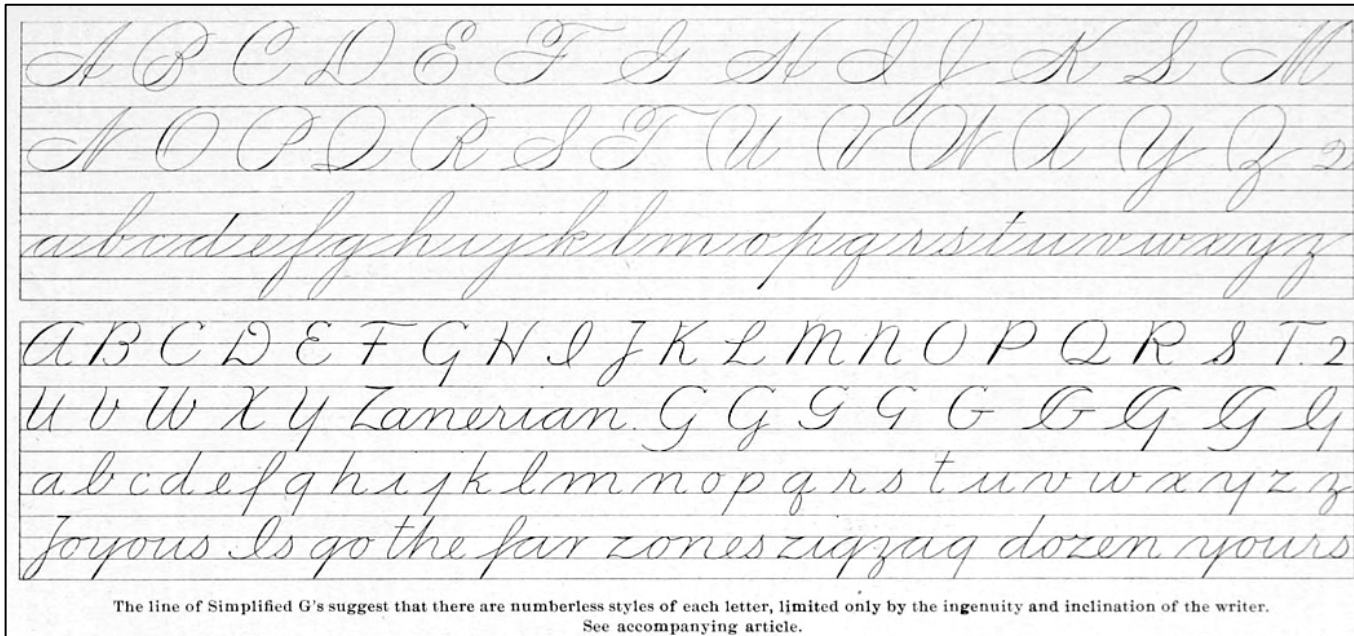 A B C D E F G H I J K L M
N O P Q R S T U V W X Y Z 2
abcdefghijklmopqrstuvwxyz
A B C D E F G H I J K L M N O P Q R S T. 2
U V W X Y Zanerian. G G G G G G G G G
a b c d e f g h i j k l m n o p q r s t u v w x y z z
Joyous Is go the far zones zigzag dozen yours
The line of Simplified G's suggest that there are numberless styles of each letter, limited only by the ingenuity and inclination of the writer.
See accompanying article.